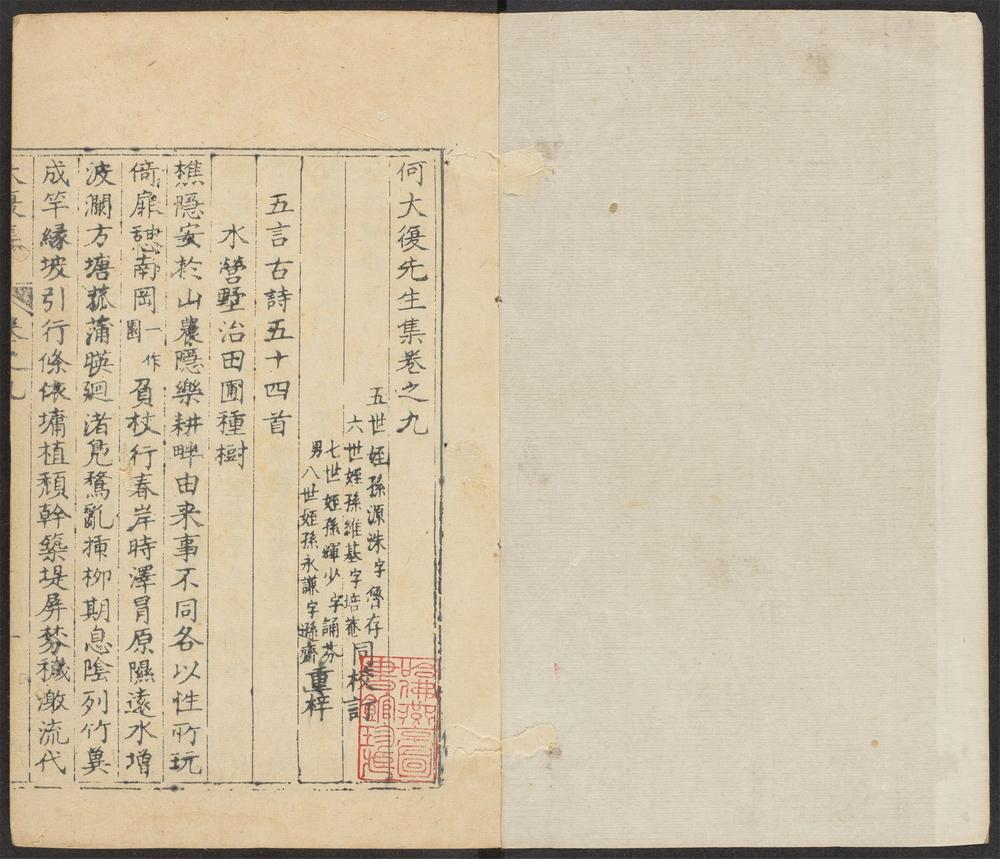 何大復先生集卷之九
五世姪孫源洙字僧存
六世姪孫維基字培菴 同校訂
七世姪孫輝少字誦芬
男八世姪孫永謙字遜齋 重梓
五言古詩五十四首
水營墅治田圃種樹
樵隱安於山農隱樂耕畔由来事不同各以性所玩
倚扉憩南岡一作園負杖行春岸時澤冒原隰遠水增
波瀾方塘菰蒲暎廻渚鳧鶩亂揷柳期息陰列竹冀
成竿緣坡引行條依墉植頹幹築堤屏棼穢激流代
大復集 卷之九
哈佛燕京圖書館珍藏